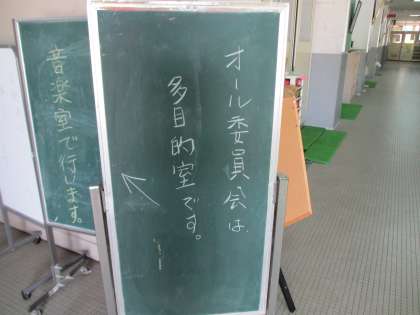 オール委員会は
多目的室です。
音楽室で行います。